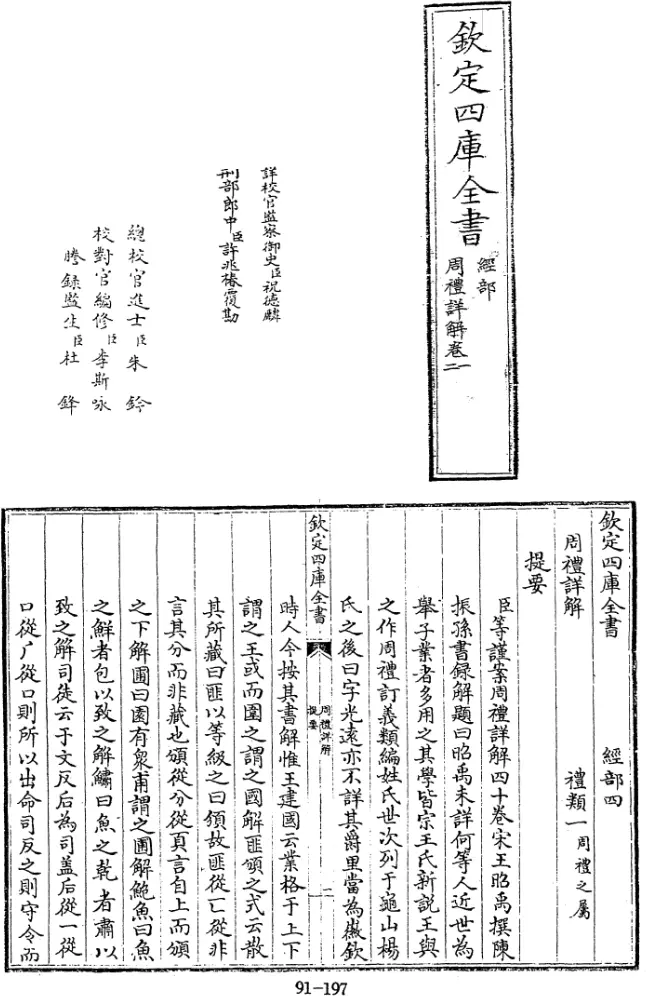 欽定四庫全書
經部
周禮詳解卷一二
詳校官監察御史臣祝德麟
刑部郎中臣許兆椿覆勘
總校官進士臣朱鈐
校對官編修臣李斯咏
謄録監生臣杜鋒
欽定四庫全書 經部四
周禮詳解 禮類一周禮之屬
提要
臣等謹案周禮詳解四十卷宋王昭禹撰陳
振孫書録解題曰昭禹未詳何等人近世為
舉子業者多用之其學皆宗王氏新説王與
之作周禮訂義類編姓氏世次列于龜山楊
氏之後曰字光遠亦不詳其爵里當為徽欽
欽定四庫全書
周禮詳解
提要
二
時人今按其書解惟王建國云業格于上下
謂之王或而圍之謂之國解匪頒之式云散
其所藏曰匪以等級之曰頒故匪從匚從非
言其分而非藏也頒從分從頁言自上而頒
之下解圃曰園有衆甫謂之圃解鮑魚曰魚
之鮮者包以致之解鱐曰魚之乾者肅以
致之解司徒云于文反后為司蓋后從一從
口從厂從口則所以出命司反之則守令而
91-197